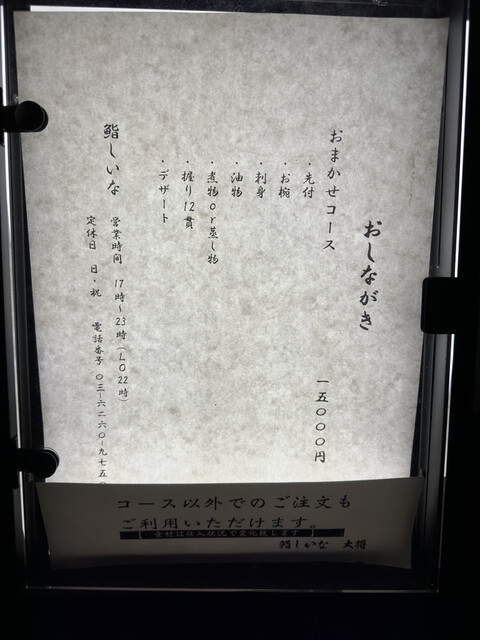 おしながき
おまかせコース 一五〇〇〇円
・先付
・お椀
・刺身
・油物
・煮物or蒸し物
・握り12貫
・デザート
鮨しいな
営業時間 17時～23時(LO22時)
定休日 日・祝 電話番号 〇三ー六二六〇ー九七五〇
コース以外でのご注文も
ご利用いただけます。
【 食材は仕入状況で変化致します 】
鮨しいな 大将